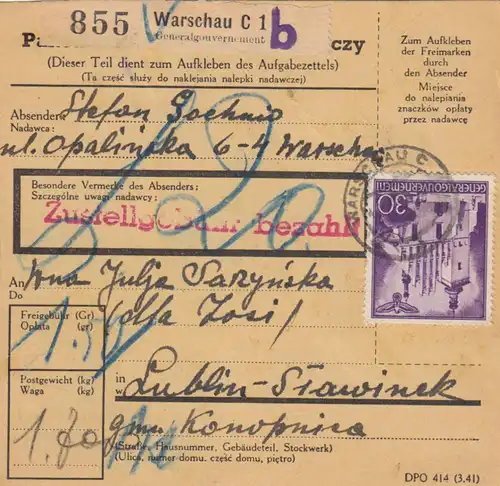 855 Warschau C 1 b
Generalgouvernement
czy
(Dieser Teil dient zum Aufkleben des Aufgabezettels)
(Ta część służy do naklejania nalepki nadawczej)
Zum Aufkleben
der Freimarken
durch
den Absender
Miejsce
do nalepiania
znaczków opłaty
przez nadawcę
Absender:
Nadawca:
Stefan
ul. Opalińska 6-4 Warschau
WARSCHAU C
Besondere Vermerke des Absenders:
Szczególne uwagi nadawcy:
Zustellgebühr bezahlt
30
GENERALGOUVERNEMENT
An
Do
Julja Saryńska
(dla Zosi)
Freigebühr (Gr)
Opłata (gr)
Postgewicht (kg)
Waga (kg)
in
Lublin-Sławinek
gm. Konopnica
(Straße, Hausnummer, Gebäudeteil, Stockwerk)
(Ulica, numer domu, część domu, piętro)
DPO 414 (3.41)